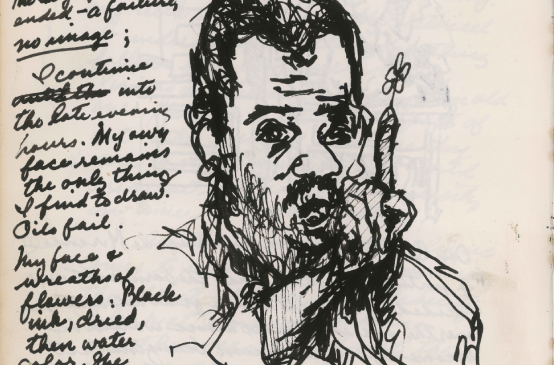 ended - a failure,
no image;
I continue
until the into
the late evening
hours. My own
face remains
the only thing
I find to draw.
Oils fail.
My face &
wreaths of
flowers: Black
ink, dried,
then water
color. The